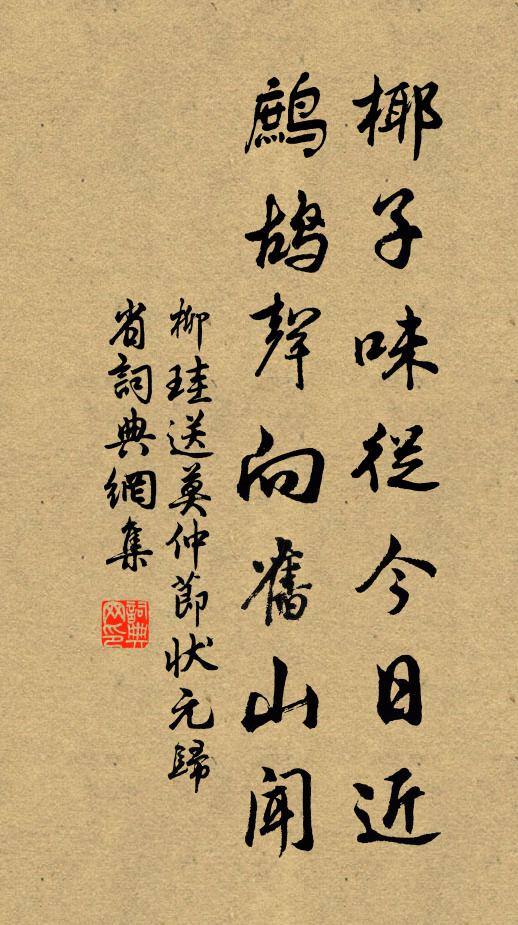 椰子味從今日近
鷓鴣聲向舊山聞
柳珪送莫仲節狀元歸
省詞典網集
詞典
网印